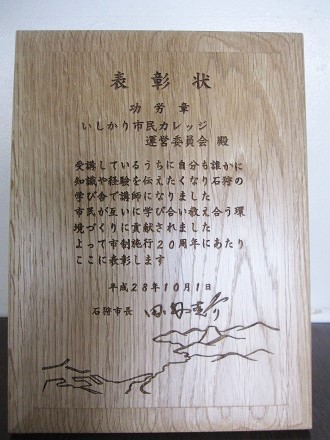 表彰状
功労章
いしかり市民カレッジ
運営委員会 殿
受講しているうちに自分も誰かに
知識や経験を伝えたくなり石狩の
学び舎で講師になりました
市民が互いに学び合い教え合う環
境づくりに貢献されました
よって市制施行20周年にあたり
ここに表彰します
平成28年10月1日
石狩市長